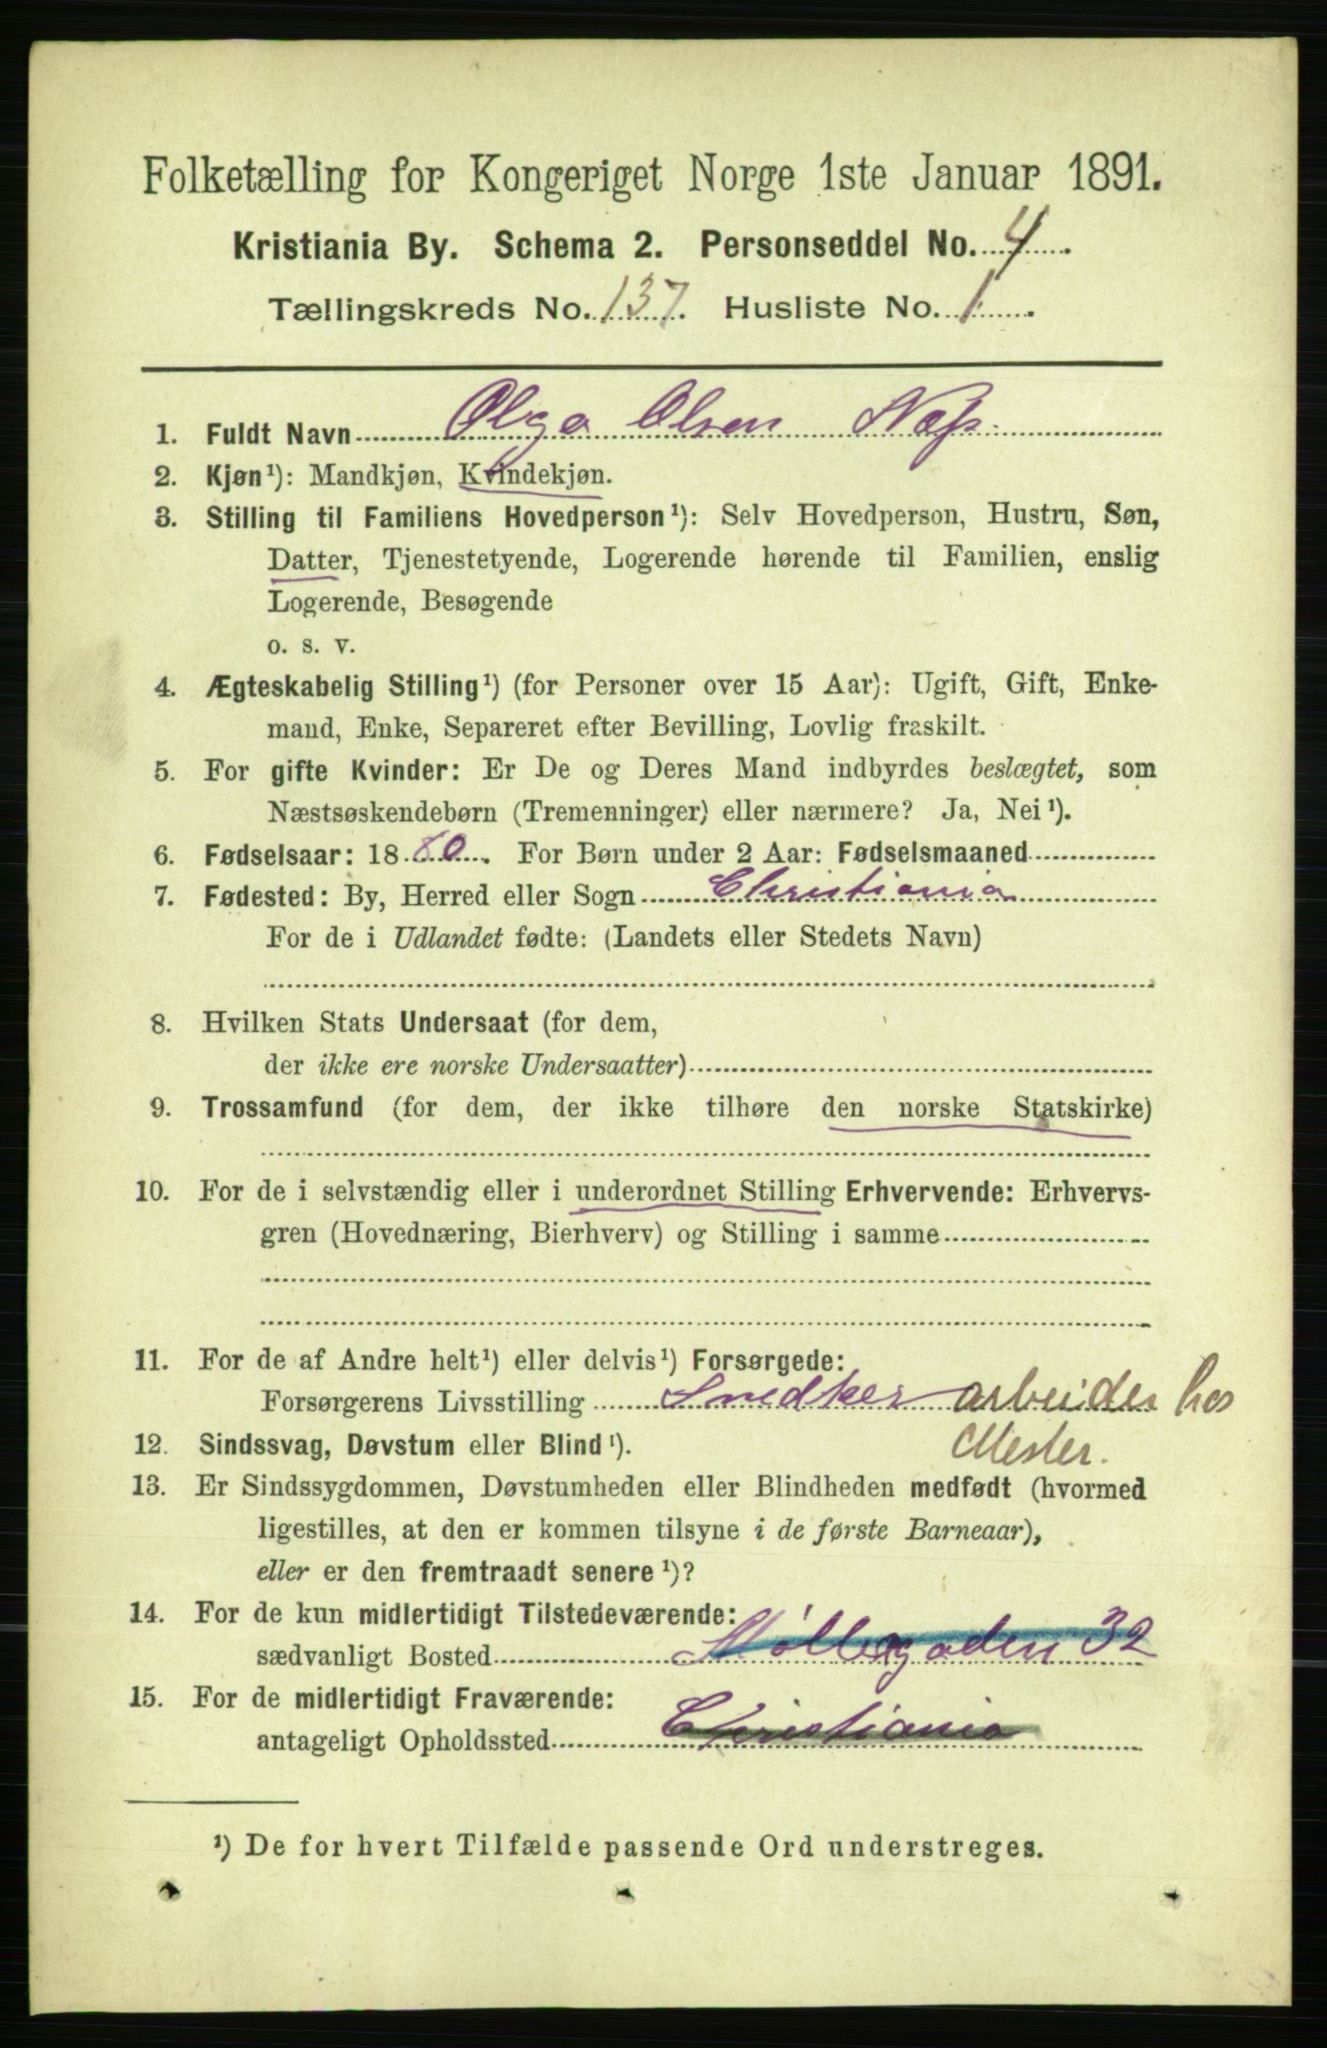 Folketælling for Kongeriget Norge 1ste Januar 1891.
Kristiania By. Schema 2. Personseddel No. 4.
Tællingskreds No. 137. Husliste No. 1.
1. Fuldt Navn Olga Olsen Næss
2. Kjøn¹): Mandkjøn, Kvindekjøn.
3. Stilling til Familiens Hovedperson¹): Selv Hovedperson, Hustru, Søn,
Datter, Tjenestetyende, Logerende hørende til Familien, enslig
Logerende, Besøgende
o. s. v.
4. Ægteskabelig Stilling¹) (for Personer over 15 Aar): Ugift, Gift, Enke-
mand, Enke, Separeret efter Bevilling, Lovlig fraskilt.
5. For gifte Kvinder: Er De og Deres Mand indbyrdes beslægtet, som
Næstsøskendebørn (Tremenninger) eller nærmere? Ja, Nei¹).
6. Fødselsaar: 1880. For Børn under 2 Aar: Fødselsmaaned
7. Fødested: By, Herred eller Sogn Christiania
For de i Udlandet fødte: (Landets eller Stedets Navn)
8. Hvilken Stats Undersaat (for dem,
der ikke ere norske Undersaatter)
9. Trossamfund (for dem, der ikke tilhøre den norske Statskirke)
10. For de i selvstændig eller i underordnet Stilling Erhvervende: Erhvervs-
gren (Hovednæring, Bierhverv) og Stilling i samme
11. For de af Andre helt¹) eller delvis¹) Forsørgede:
Forsørgerens Livsstilling Snedker arbeider hos
Mester.
12. Sindssvag, Døvstum eller Blind¹).
13. Er Sindssygdommen, Døvstumheden eller Blindheden medfødt (hvormed
ligestilles, at den er kommen tilsyne i de første Barneaar),
eller er den fremtraadt senere¹)?
14. For de kun midlertidigt Tilstedeværende:
sædvanligt Bosted Møllegaden 32
15. For de midlertidigt Fraværende:
antageligt Opholdssted Christiania
¹) De for hvert Tilfælde passende Ord understreges.